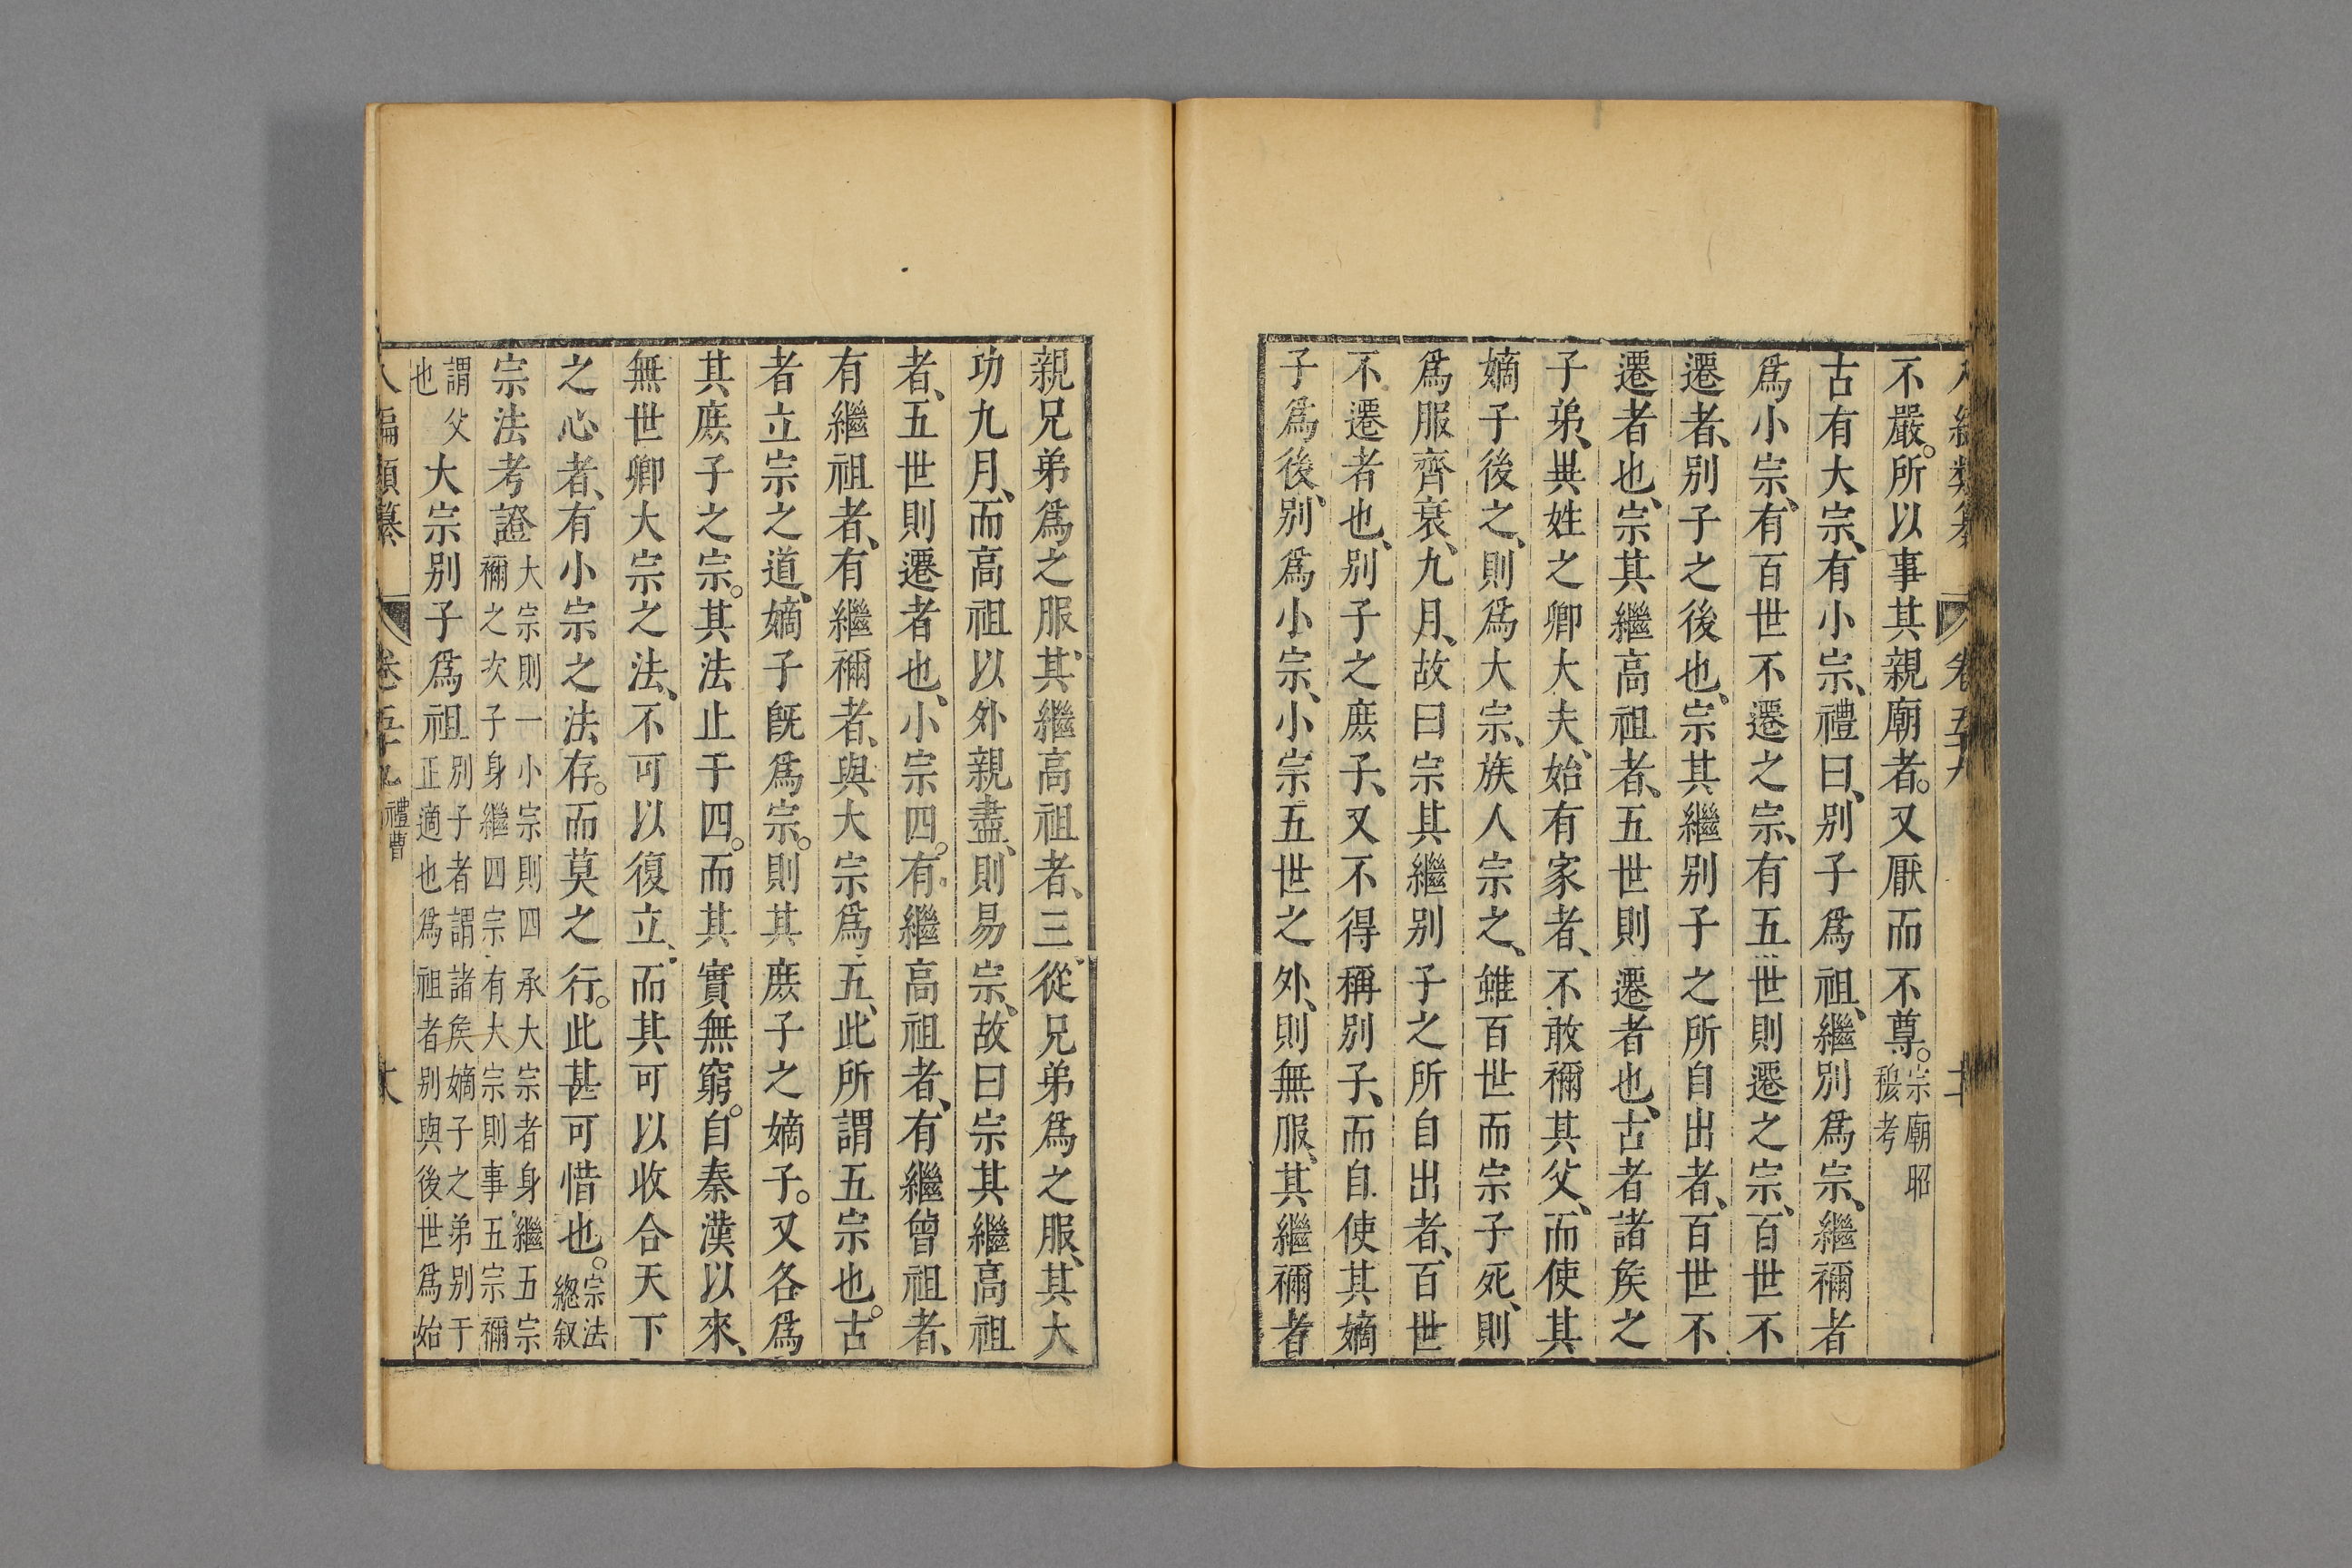 不嚴。所以事其親廟者。又厭而不尊。宗廟昭
穆考
古有大宗、有小宗、禮曰、別子爲祖、繼別爲宗、繼禰者
爲小宗、有百世不遷之宗、有五世則遷之宗、百世不
遷者、別子之後也、宗其繼別子之所自出者、百世不
遷者也、宗其繼高祖者、五世則遷者也、古者諸矦之
子弟、異姓之卿大夫、始有家者、不敢禰其父、而使其
嫡子後之、則爲大宗、族人宗之、雖百世而宗子死、則
爲服齊衰、九月、故曰宗其繼別子之所自出者、百世
不遷者也、別子之庶子、又不得稱別子、而自使其嫡
子爲後、別爲小宗、小宗五世之外、則無服、其繼禰者
親兄弟爲之服、其繼高祖者、三從兄弟爲之服、其大
功九月、而高祖以外親盡、則易宗、故曰宗其繼高祖
者、五世則遷者也、小宗四。有繼高祖者、有繼曾祖者、
有繼祖者、有繼禰者、與大宗爲五、此所謂五宗也。古
者立宗之道、嫡子旣爲宗。則其庶子之嫡子。又各爲
其庶子之宗。其法止于四。而其實無窮。自秦漢以來、
無世卿大宗之法、不可以復立、而其可以收合天下
之心者、有小宗之法存。而莫之行。此甚可惜也。宗法
總叙
宗法考證大宗則一小宗則四承大宗者身繼五宗
禰之次子身繼四宗有大宗則事五宗禰
謂父
也
大宗別子爲祖別子者謂諸矦嫡子之弟別于
正適也爲祖者別與後世爲始
編類纂 卷五十九 禮曹